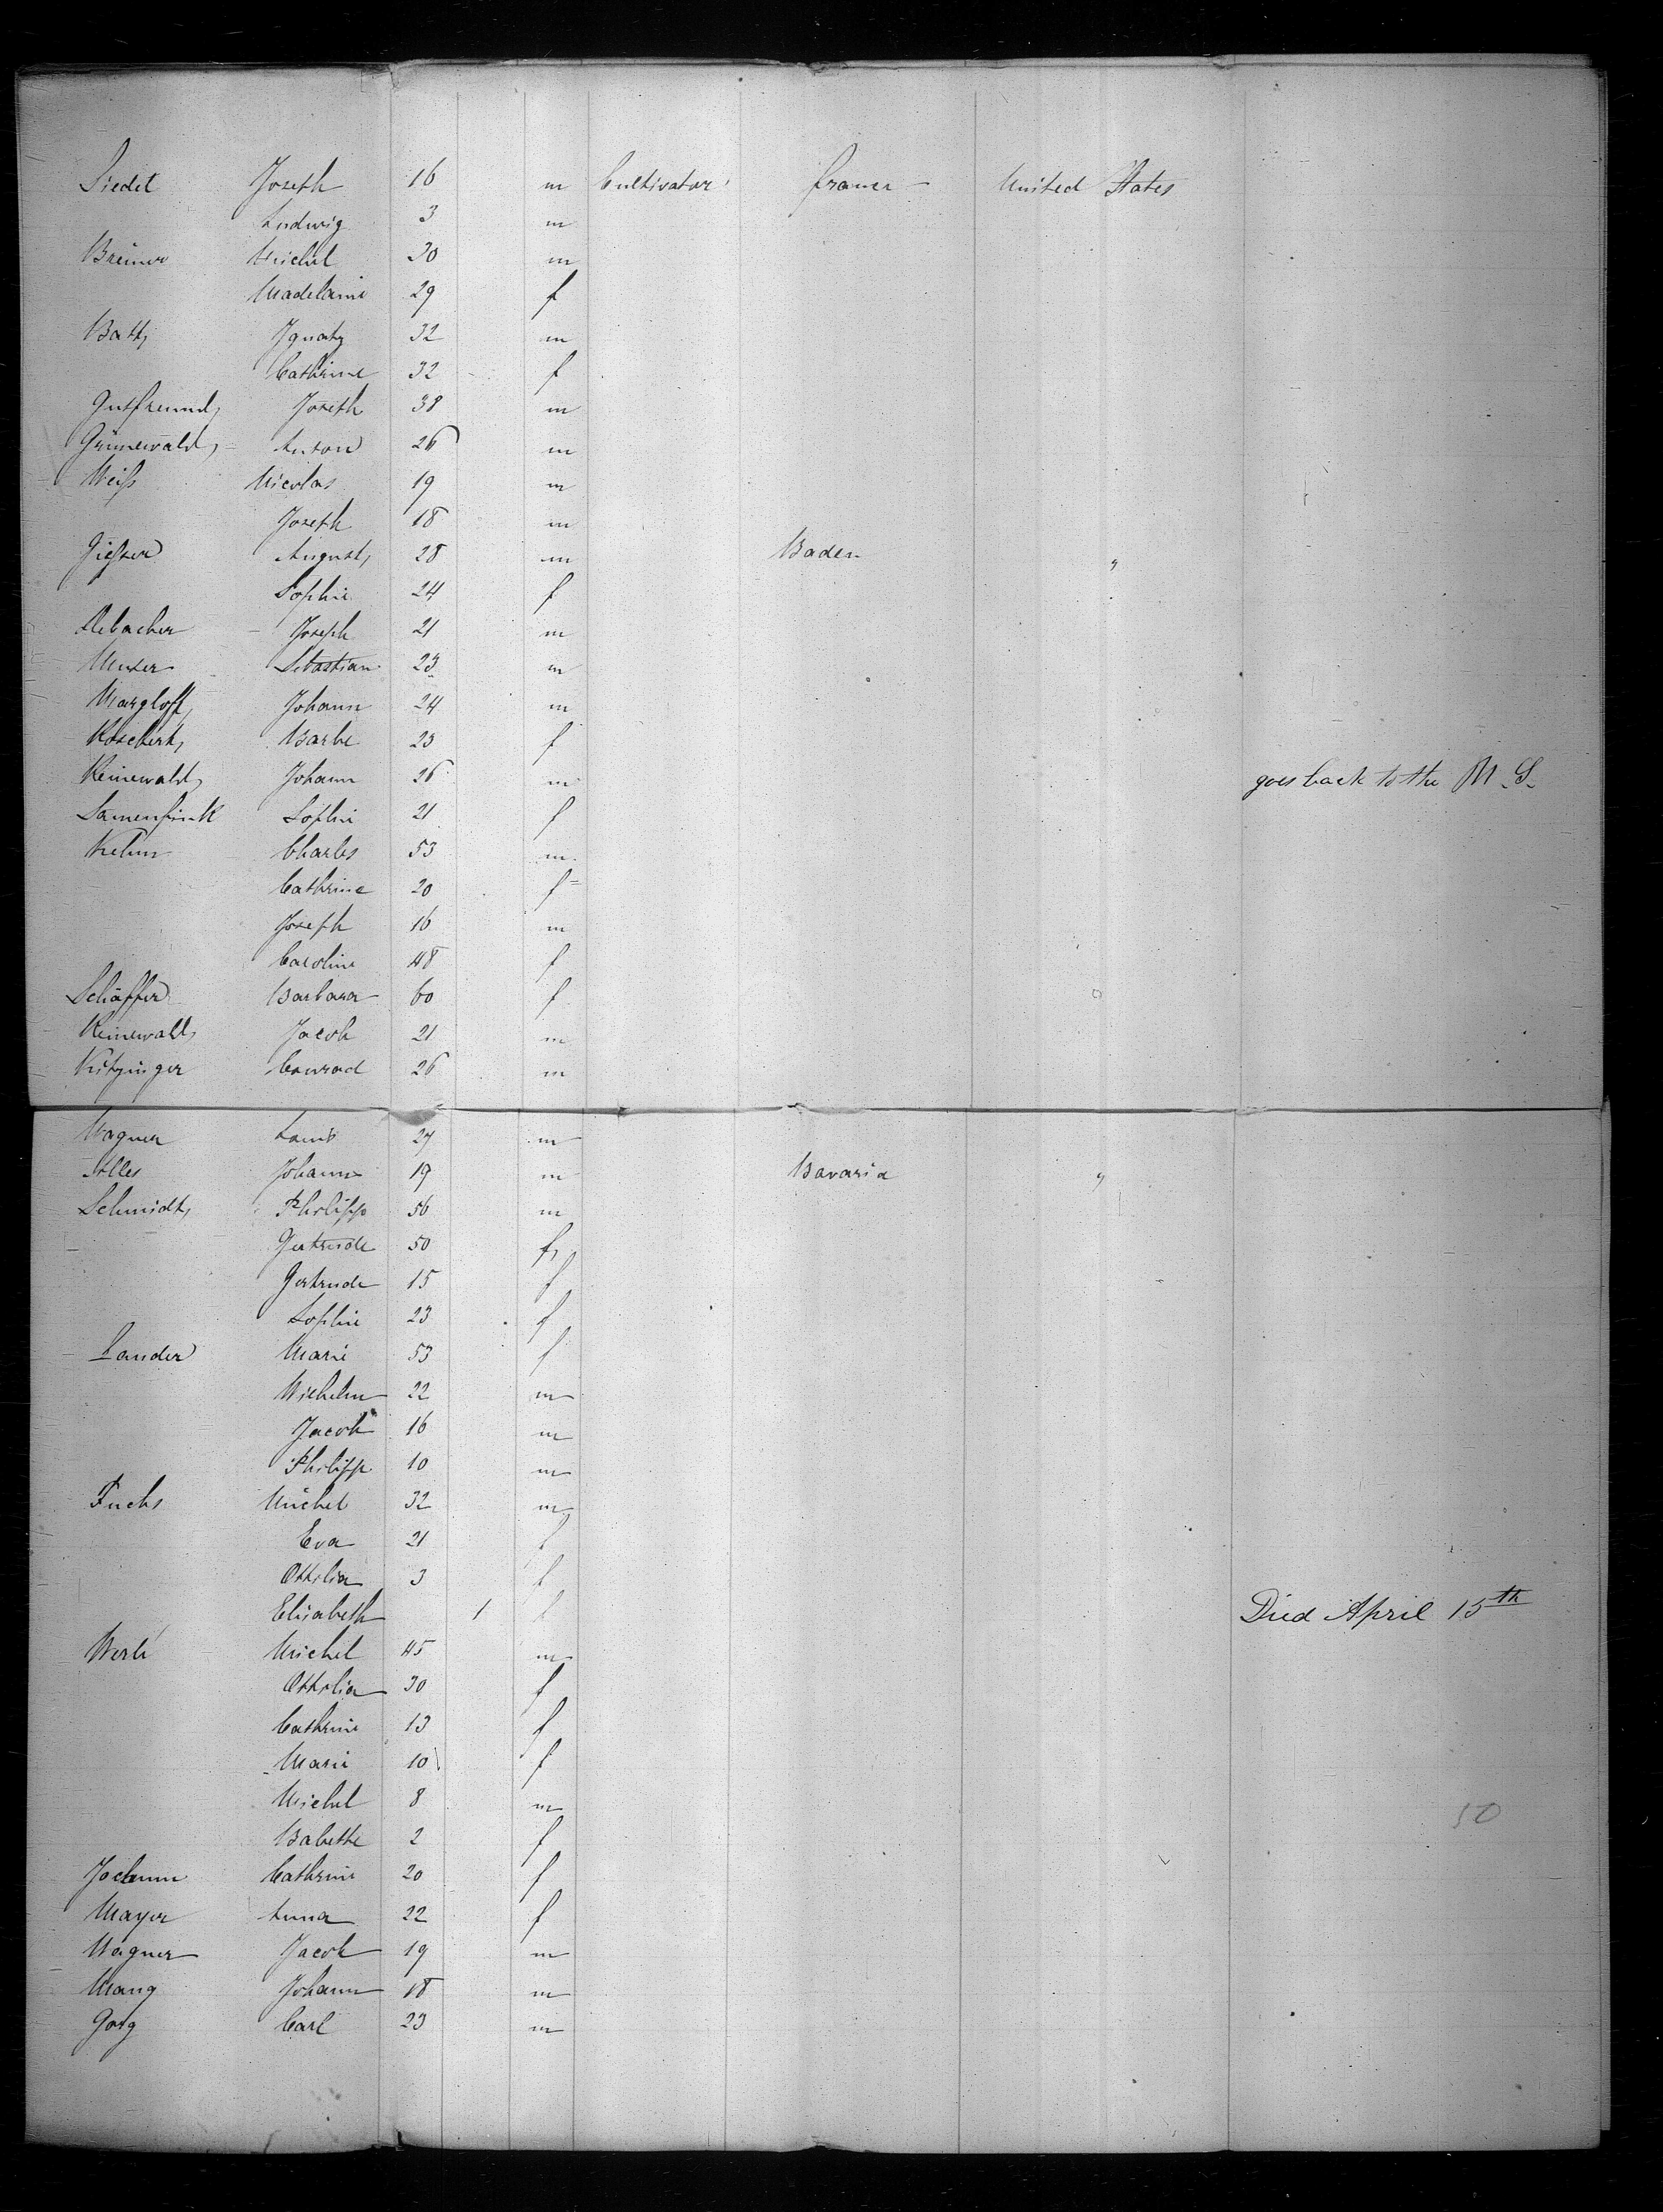 Siedel Joseph 16 m Cultivator france United States
Ludwig 3 m
Breiner Michel 30 m
Madelaine 29 f
Batt, Ignatz 32 m
Cathrine 32 f
Gutfreund, Joseph 38 m
Grünewald, Anton 26 m
Weiß Nicolas 19 m
Joseph 18 m
August, 28 m Baden "
Sophie 24 f
Joseph 21 m
Sebastian 23 m
Margloff, Johann 24 m
Barbe 23 f
Reinewald, Johann 26 m goes back to the M. S.
Samenfink Sophie 21 f
Kehm Charles 53 m
Cathrine 20 f
Joseph 16 m
Caroline 48 f
Schäffer Barbara 60 f
Reinewald, Jacob 21 m
Kitzinger Conrad 26 m
Wagner Louis 27 m
Alles Johann 19 m Bavaria "
Schmidt, Philipp 56 m
Gertrude 50 f
Gertrude 15 f
Sophie 23 f
Lander Marie 53 f
Wilhelm 22 m
Jacob 16 m
Philipp 10 m
Fuchs Michel 32 m
Eva 21 f
Ottilia 3 f
Elisabeth 1 f Died April 15th
Werle Michel 45 m
Ottilia 30 f
Cathrine 13 f
Marie 10 f
Michel 8 m
50
Babette 2 f
Jochum Cathrine 20 f
Mayer Anna 22 f
Wagner Jacob 19 m
Mang Johann 18 m
Gorg Carl 23 m